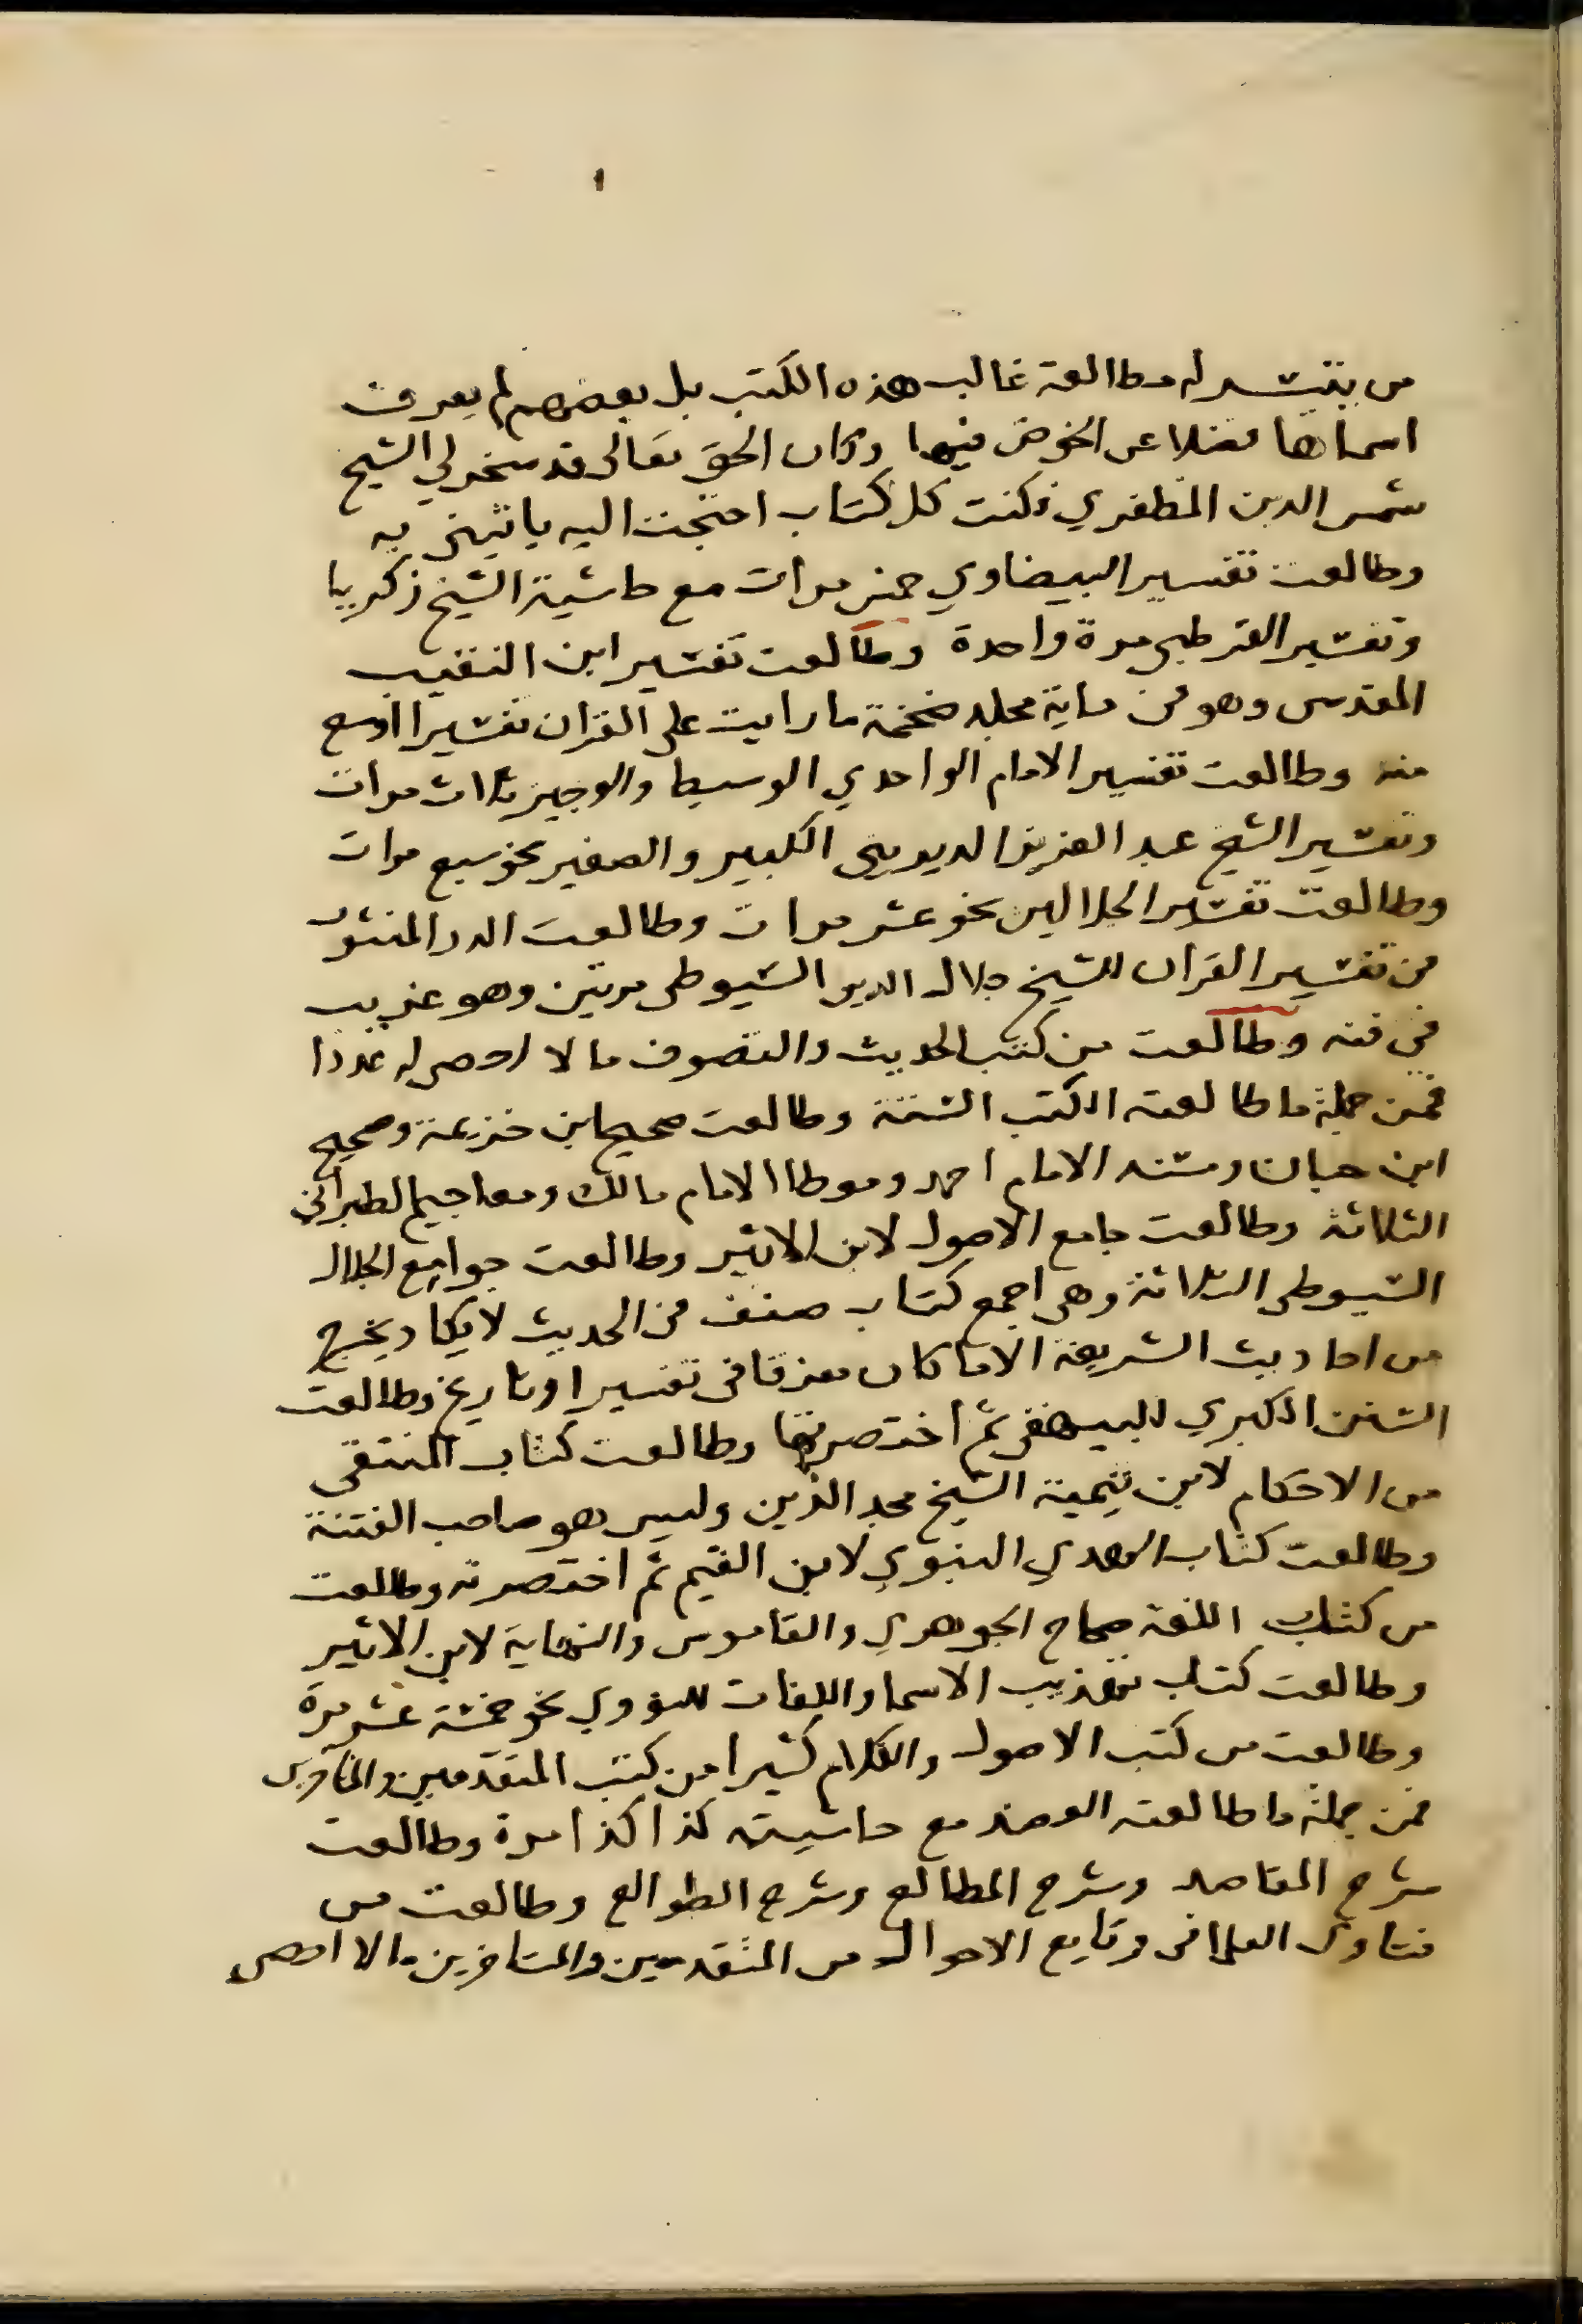 من يتيسر له مطالعة غالب هذه الكتب بل بعضهم لم يعرف
اسماها فضلا عن الخوض فيها وكان الحق تعالى قد سخر لي الشيخ
شمس الدين المظفري فكنت كل كتاب احتجت اليه ياتيني به
وطالعت تفسير البيضاوي خمس مرات مع حاشية الشيخ زكريا
وتفسير القرطبي مرة واحدة وطالعت تفسير ابن النقيب
المقدسي وهو في ماية مجلد ضخمة ما رايت على القران تفسيرا اوسع
منه وطالعت تفسير الامام الواحدي الوسيط والوجيز ثلاث مرات
وتفسير الشيخ عبد العزيز الديريني الكبير والصغير نحو سبع مرات
وطالعت تفسير الجلالين نحو عشر مرات وطالعت الدر المنثور
في تفسير القران للشيخ جلال الدين السيوطي مرتين وهو غريب
في فنه وطالعت من كتب الحديث والتصوف ما لا احصي له عددا
فمن جملة ما طالعته الكتب الستة وطالعت صحيح ابن خزيمة وصحيح
ابن حبان ومسند الامام احمد وموطا الامام مالك ومعاجيم الطبراني
الثلاثة وطالعت جامع الاصول لابن الاثير وطالعت جوامع الجلال
السيوطي الثلاثة وهي اجمع كتاب صنف في الحديث لا يكاد يخرج
من احاديث الشريعة الا ما كان مفرقا في تفسير او تاريخ وطالعت
السنن الكبرى للبيهقي ثم اختصرتها وطالعت كتاب المنتقى
من الاحكام لابن تيمية الشيخ مجد الدين وليس هو صاحب الفتنة
وطالعت كتاب الهدي النبوي لابن القيم ثم اختصرته وطالعت
من كتاب اللغة صحاح الجوهري والقاموس والنهاية لابن الاثير
وطالعت كتاب تهذيب الاسما واللغات للنووي نحو خمسة عشر مرة
وطالعت من كتب الاصول والكلام كثيرا من كتب المتقدمين والمتاخرين
فمن جملة ما طالعته العضد مع حاشيته كذا كذا مرة وطالعت
شرح المقاصد وشرح المطالع وشرح الطوالع وطالعت من
فتاوى العلما في وقايع الاحوال من المتقدمين والمتاخرين مالا احصي